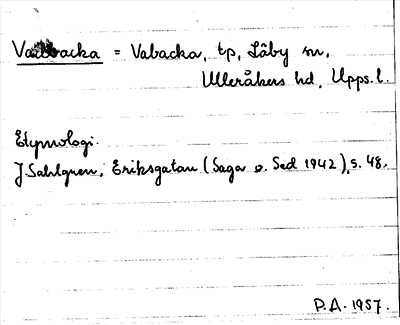 Vallbacka = Vabacka, tp, Läby sn,
Ulleråkers hd, Upps. l.
Etymologi.
J Sahlgren, Eriksgatan (Saga o. Sed 1942), s. 48.
P.A. 1957.